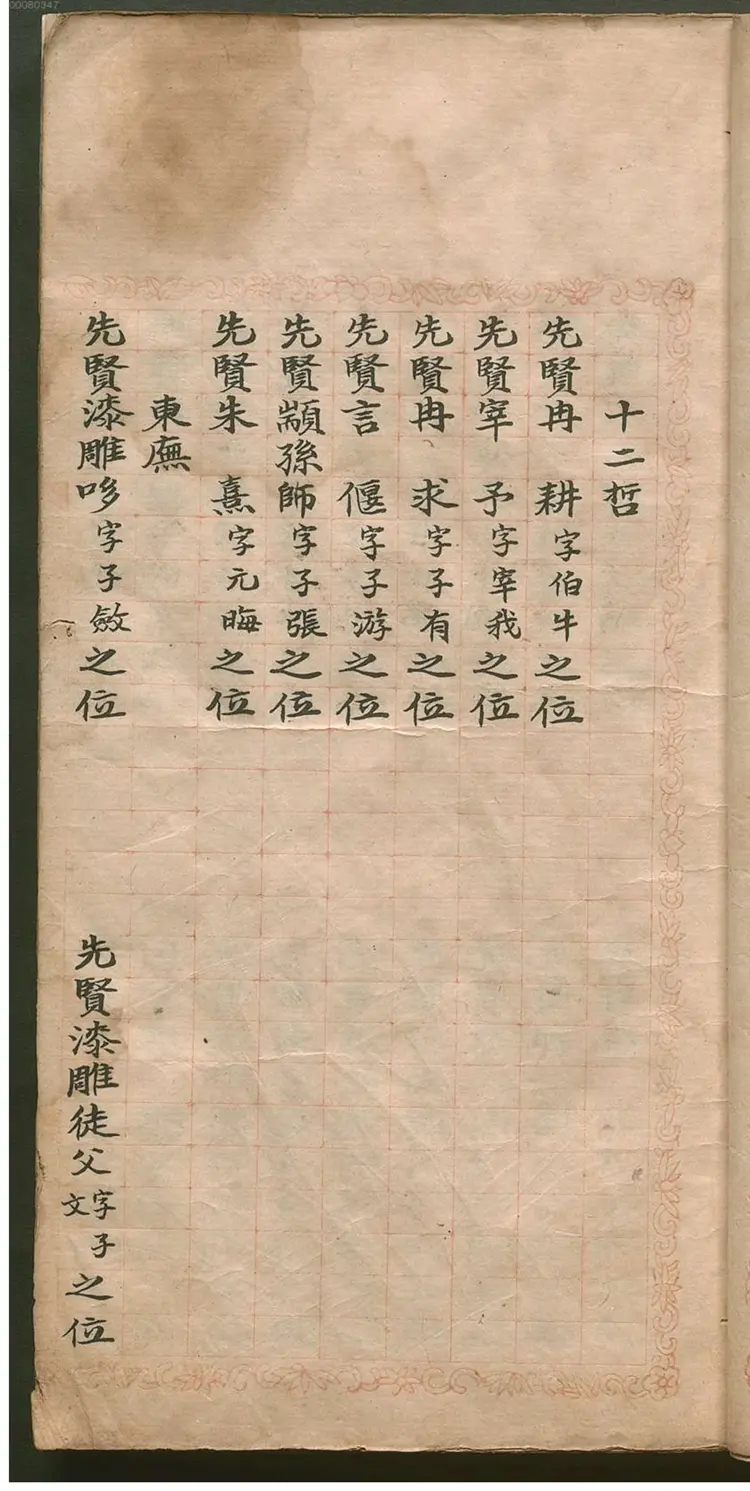 00080347
十二哲
先賢冉 耕字伯牛之位
先賢宰 予字宰我之位
先賢冉 求字子有之位
先賢言 偃字子游之位
先賢顓孫師字子張之位
先賢朱 熹字元晦之位
東廡
先賢漆雕哆字子斂之位
先賢漆雕徒父字子文之位